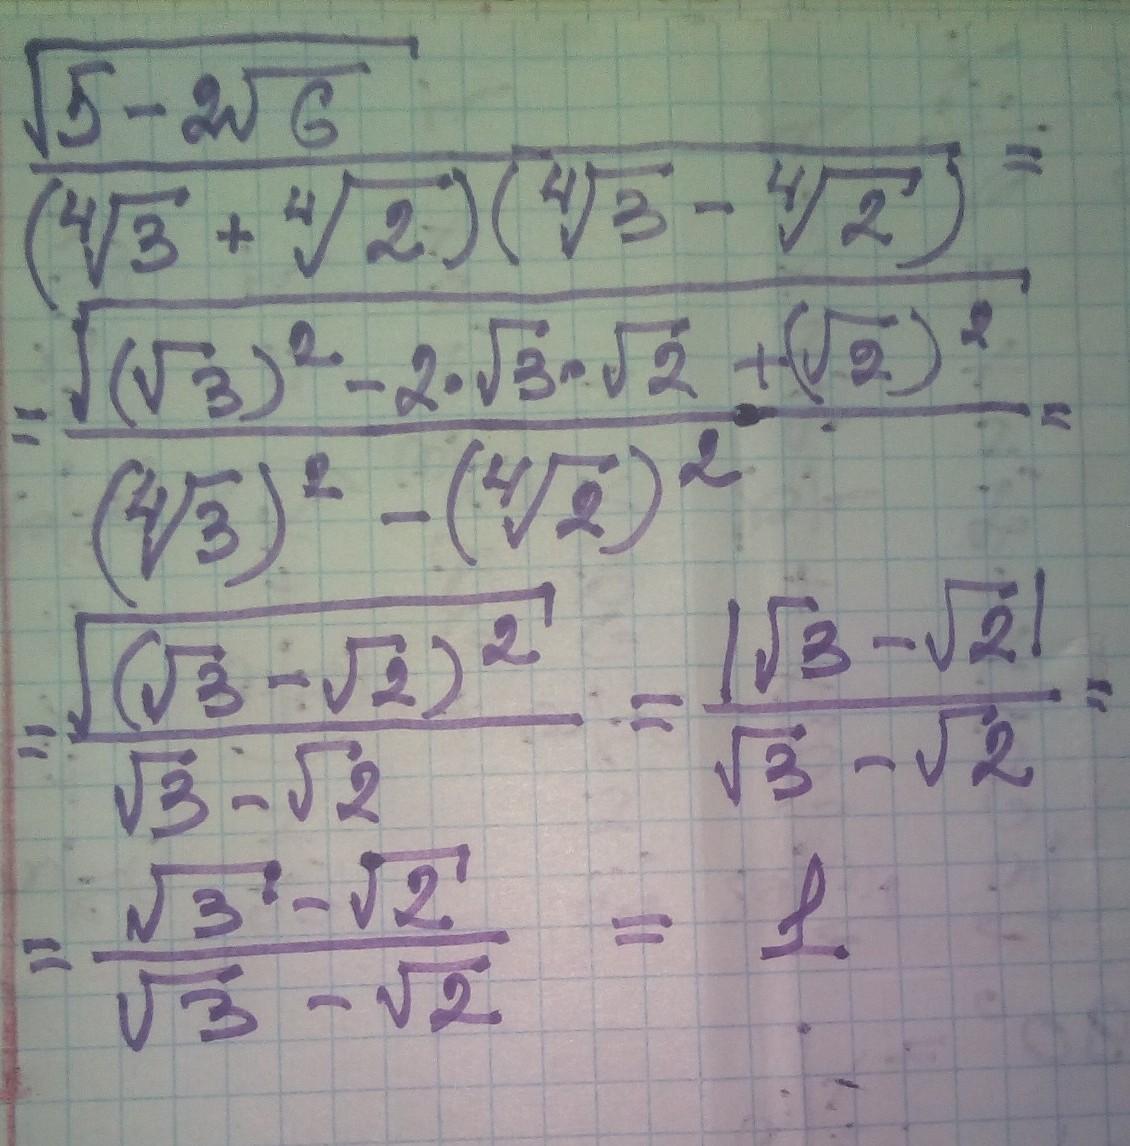 √(5 - 2√6) / ((⁴√3 + ⁴√2)(⁴√3 - ⁴√2)) =
= √((√3)² - 2·√3·√2 + (√2)²) / ((⁴√3)² - (⁴√2)²) =
= √((√3 - √2)²) / (√3 - √2) = |√3 - √2| / (√3 - √2) =
= (√3 - √2) / (√3 - √2) = 1